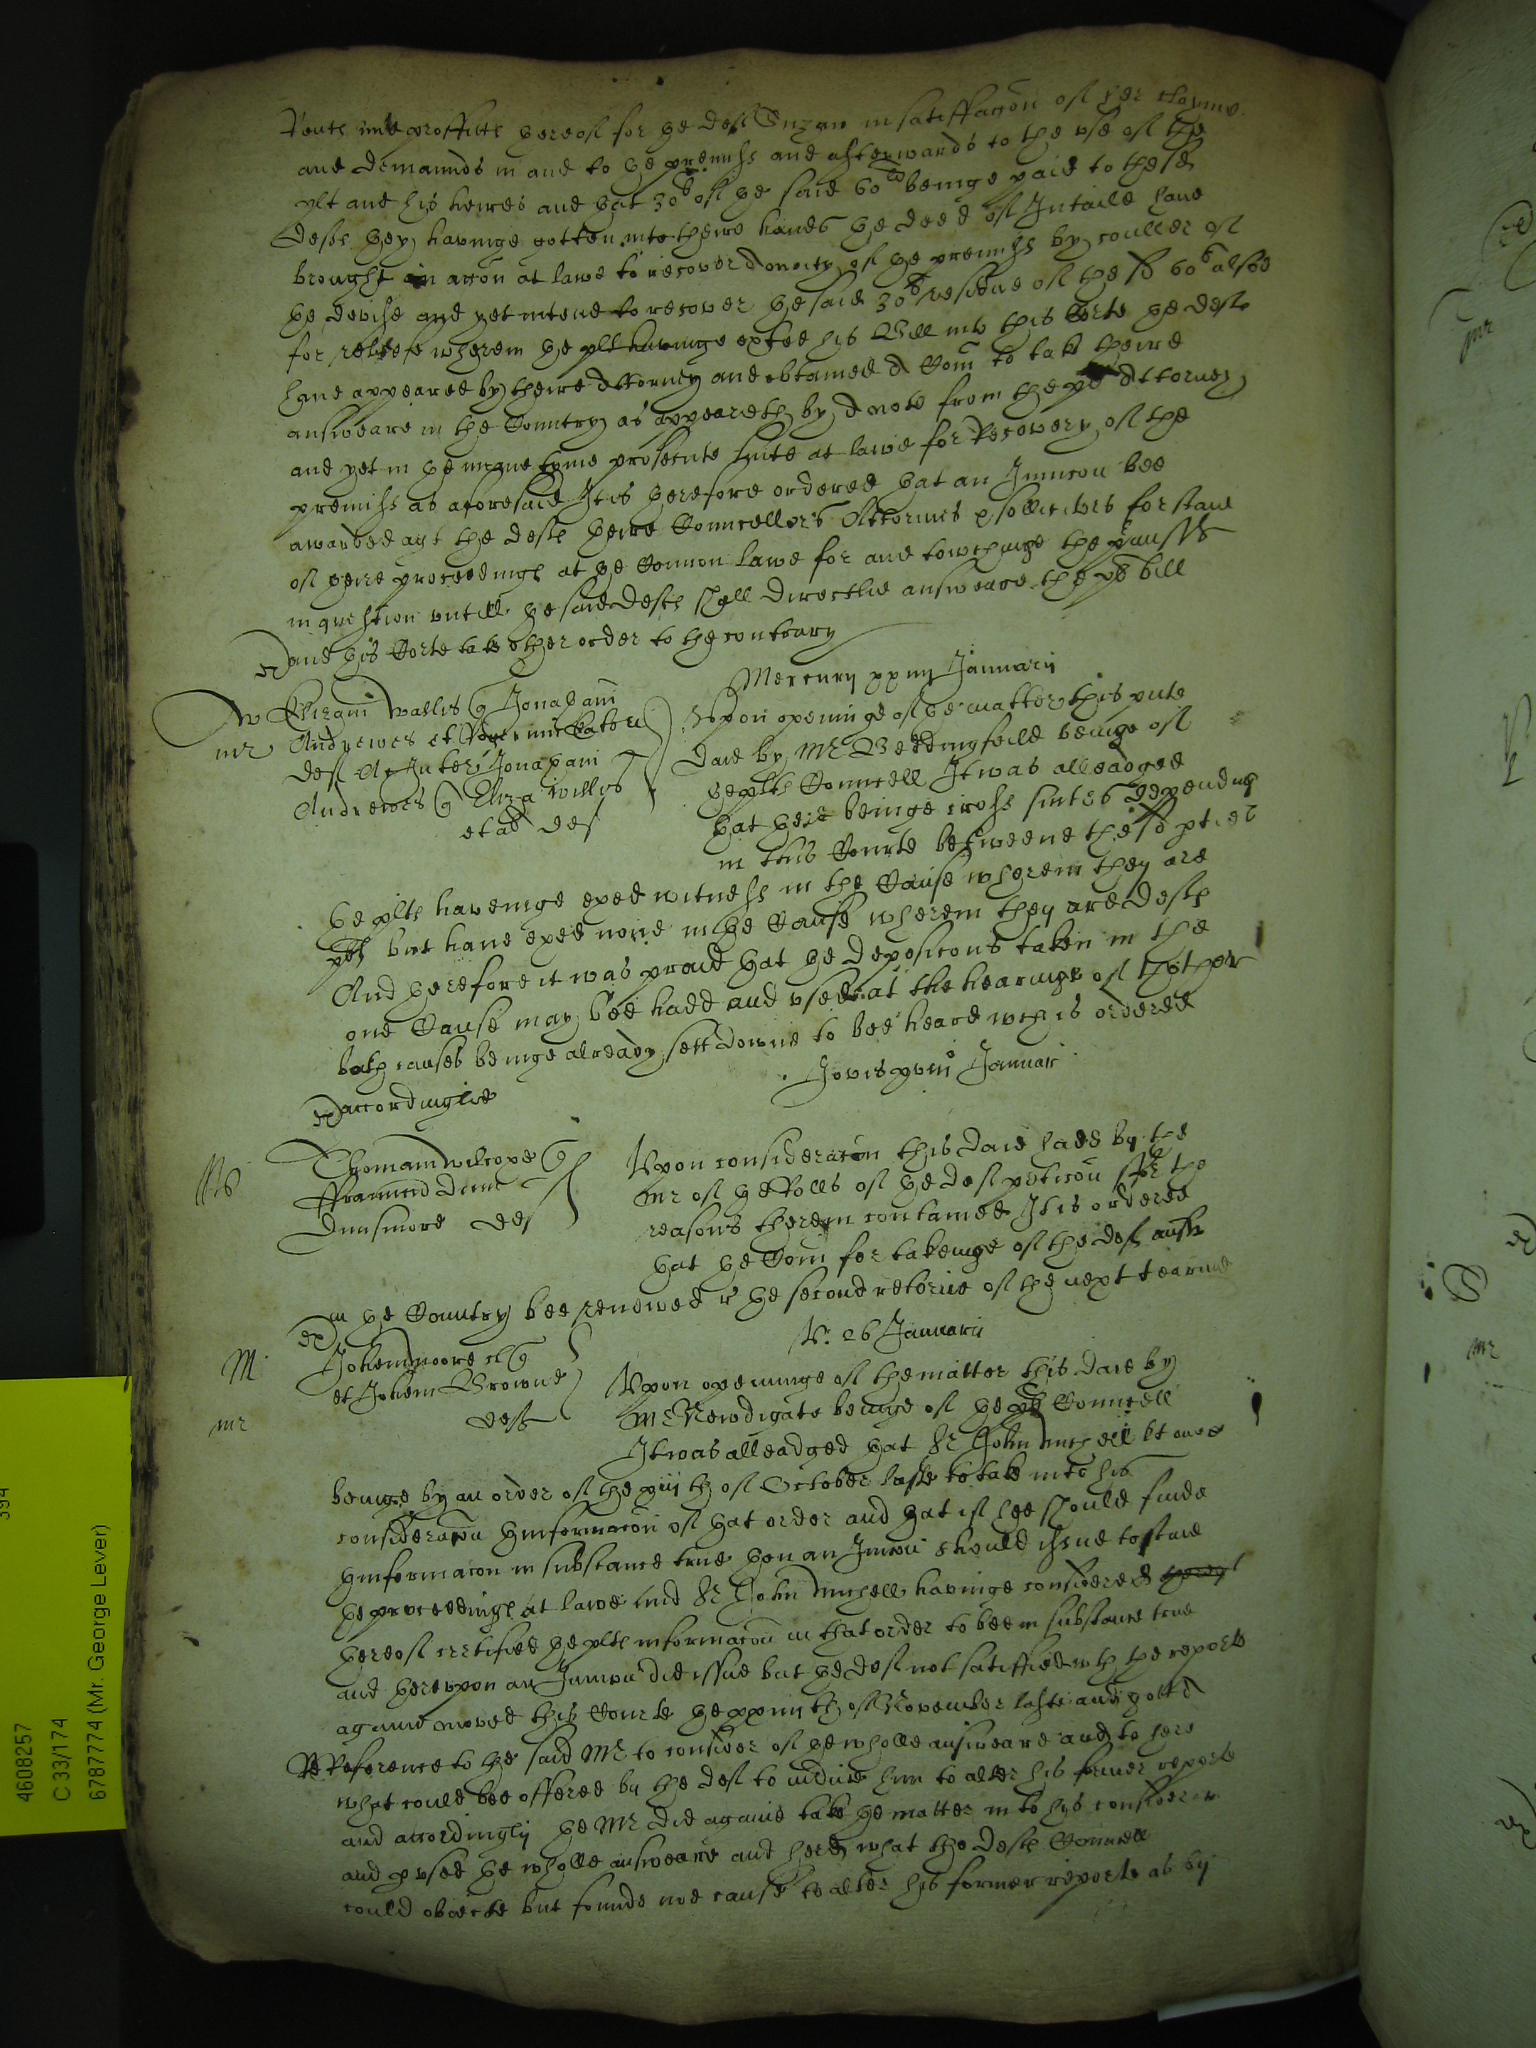 Rents and proffitts thereof for the def Suzan in satisffaccon of her clayme
and demaunds in and to the premiss and afterwards to the use of the
plt and his heires and that 30li of the said 60li beinge paid to these
defts they havinge gotten into theire hands the deed of Intaile have
brought an accon at lawe to recover moity of the premiss by couller of
the devise and yet intend to recover the said 30li residue of the sd 60li alsoe
for releefe wherein the plt havinge exhted his Bill into this Corte the defts
have appeared by theire Attorney and obtained A Com to take theire
answeare in the Country as appeareth by A note from the pts Attorney
and yet in the meane tyme prosecute suite at lawe for Recovery of the
premiss as aforesaid It is therefore ordered that an Iniuncon bee
awarded agt the defts theire Councellors Attornies & sollicitors for staie
of theire proceedings at the Common lawe for and towchinge the premiss
in question untill the said defts shall directlie answeare the pts bill
and this Corte take other order to the contrary
Mercurij xxiiij Januarij
Willis Jonathan
Andrewes et
def Ac Inter Jonathan
Andrewes Eliza Willis
et al def
Upon openinge of the matter this pnte
daie by Mr Beddingfeild beinge of
the plts Councell It was alleadged
that there beinge cross suites dependinge
in this Courte betweene the sd pties
the plts haveinge exed witness in the Cause wherein they are
plts but have exed none in the Cause wherein they are defts
And therefore it was praid that the deposicons taken in the
one Cause may bee hadd and used at the hearinge of thother
both causes beinge already sett downe to bee heard wch is ordered
accordinglie
Jovis Januar
Thomam
Dunsmore def
Upon consideracon this daie hadd by the
Mr of the Rolls of the def peticon for the
reasons therein contained It is ordered
that the Com for takeinge of the def answ
in the Country bee renewed r the second retorne of the next tearme
V. 26 Januarij
Johem moore
et Johem Browne
defts
Upon openinge of the matter this daie by
Mr Newdigate beinge of the plts Councell
It was alleadged that Sr John Michell kt one
beinge by an order of the xiijth of October laste to take into his
consideracon thinformacon of that order and that if hee should finde
thinformacon in substance true then an Iniuncon should issue to staie
the proceedings at lawe And Sr John Michell havinge considered
thereof certified the plts informacon in that order to bee in substance true
and thereupon an Iniuncon did issue but the def not satisffied wth the reporte
againe moved this Courte the xxiiijth of November laste and gott A
Reference to the said Mr to consider of the wholle answeare and to here
what could bee offered by the def to induce him to alter his former reporte
and accordingly the Mr did againe take the matter into his consideracon
and pused the wholle answeare and herd what the defts Councell
could obiecte but founde noe cause to alter his former reporte as by
4608257
C 33/174
6787774 (Mr. George Lever)